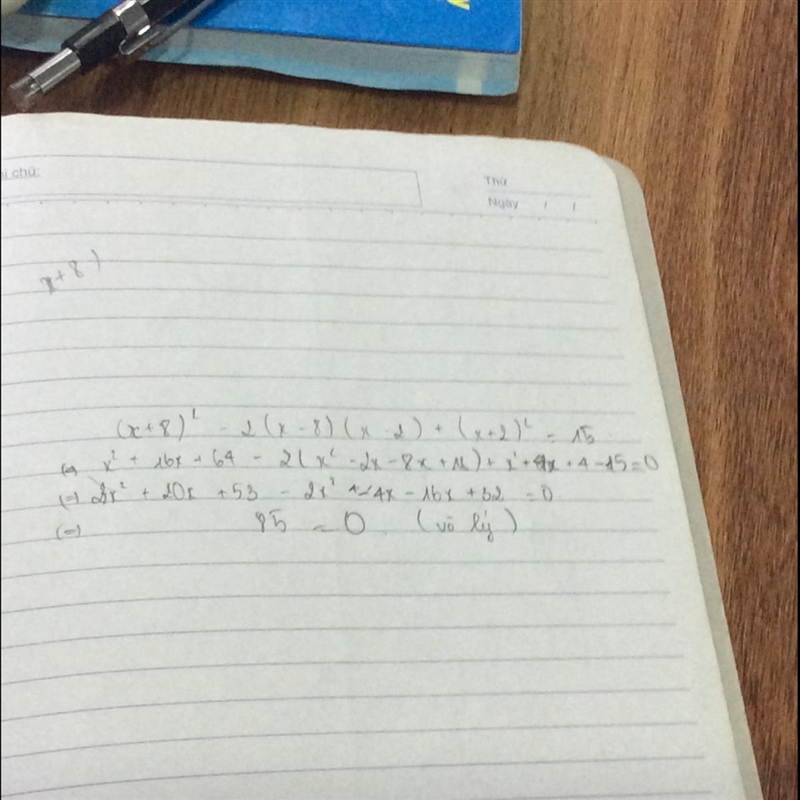 hi chú:
Thứ
Ngày / /
x+8)
(x+8)² - 2(x-8)(x-2) + (x+2)² = 15
(=) x² + 16x + 64 - 2(x² - 2x - 8x + 16) + x² + 4x + 4 - 15 = 0
(=) 2x² + 20x + 53 - 2x² - 4x - 16x + 32 = 0
(=) 85 = 0 (vô lý)